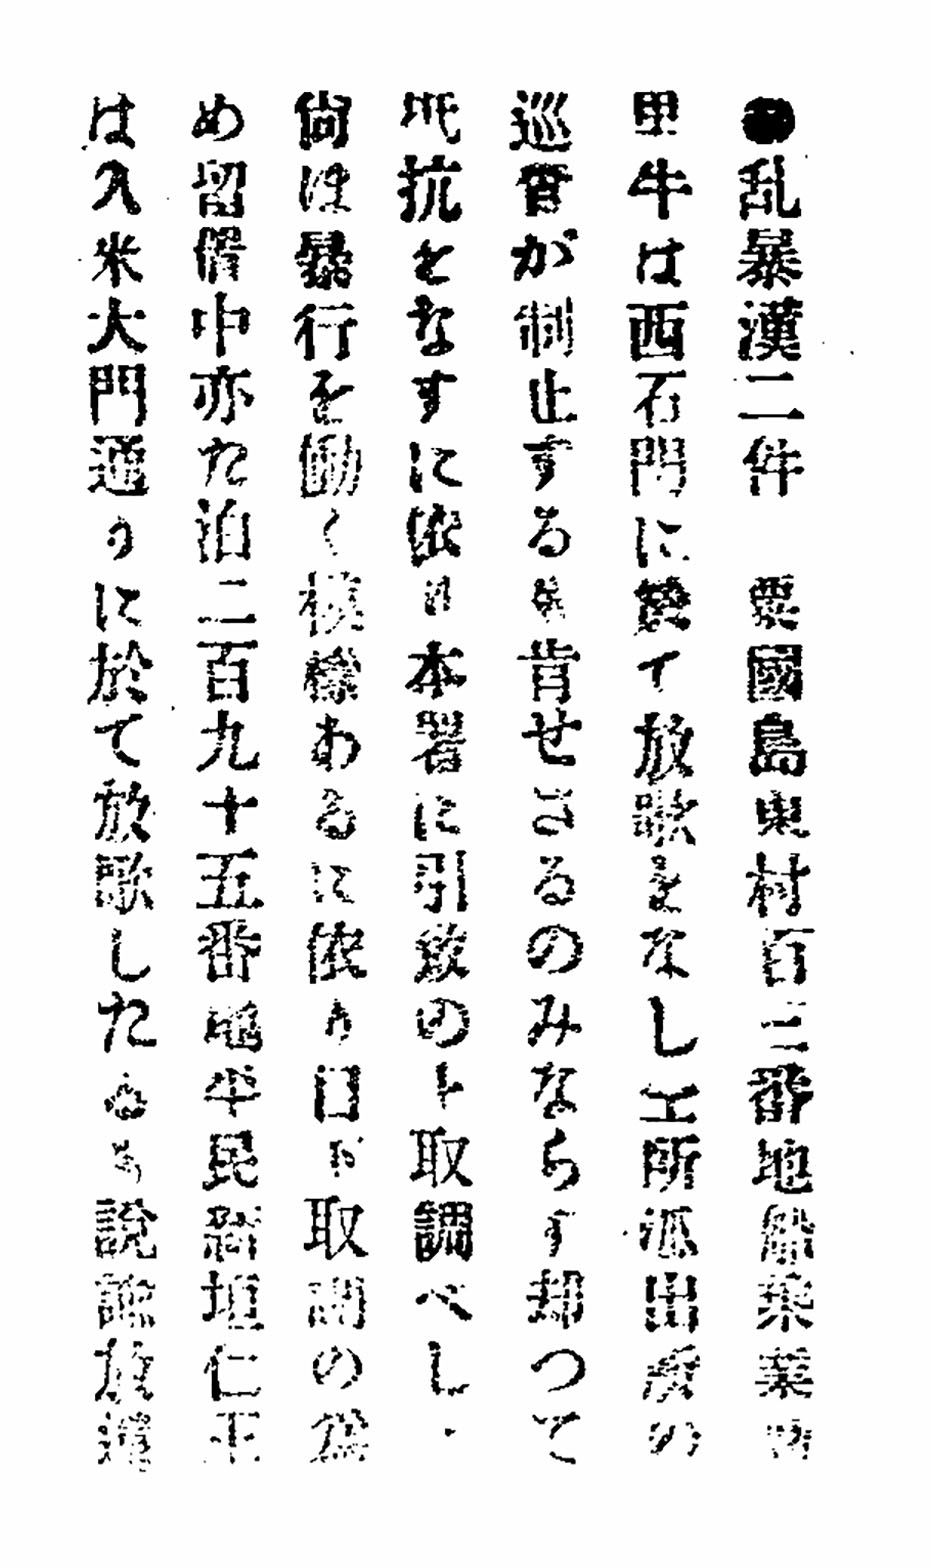 ●乱暴漢二件　粟國島東村百二番地船乗業
里牛は西石門に於て放歌をなし工所派出所の
巡査が制止するも肯せざるのみならす却つて
抵抗をなすに依り本署に引致の上取調べし
尚は暴行を働く模様あるに依り目下取調の為
め留置中亦た泊二百九十五番地平民新垣仁王
は久米大門通りに於て放歌したるも説諭放還